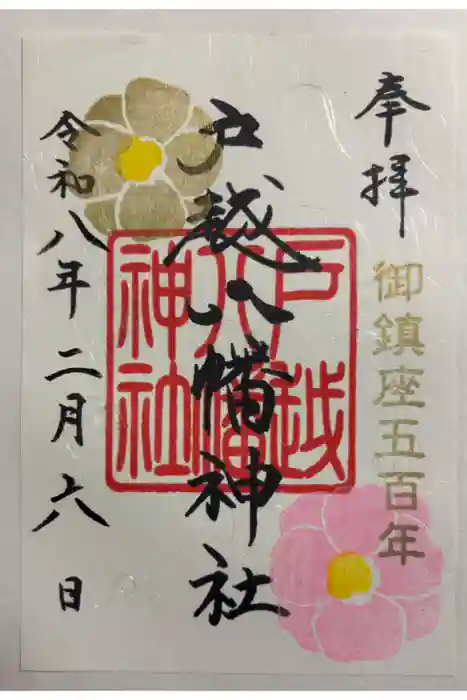 奉拝
御鎮座五百年
戸越八幡神社
戸越
八幡
神社
令和八年二月六日